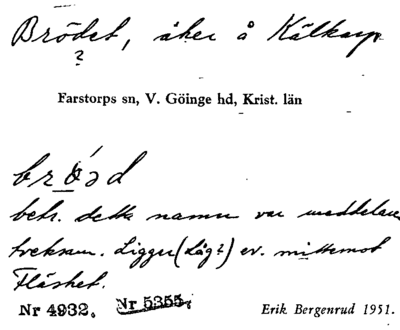 Brödet, åker å Kälkarp
?
Farstorps sn, V. Göinge hd, Krist. län
brö́əd
betr. detta namn var meddelaren
tveksam. Ligger (Låg?) ev. mittemot
Fläsket.
Nr 4932. Nr 5355.
Erik Bergenrud 1951.